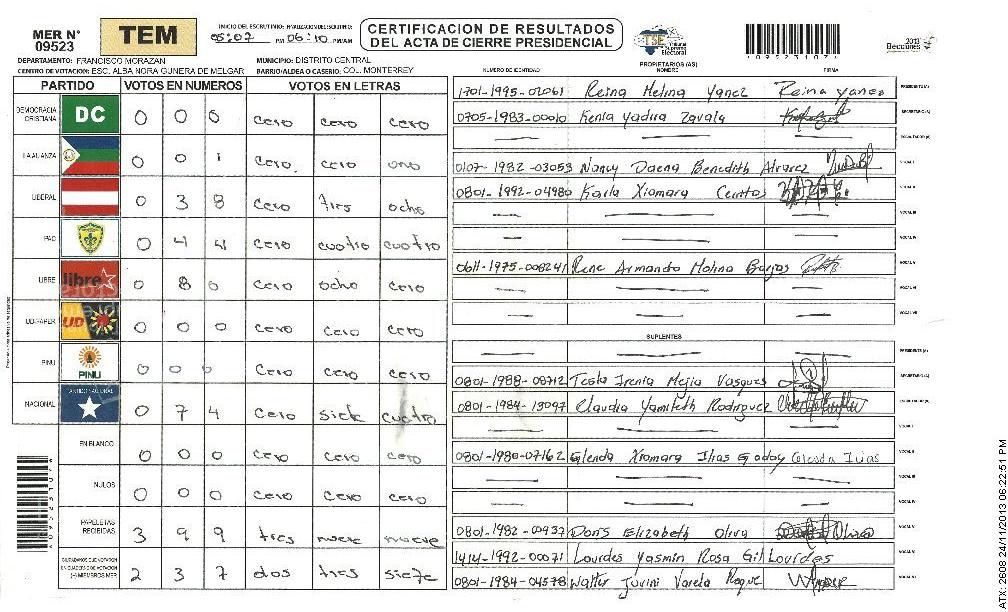 MER N° 09523
TEM
INICIO DEL ESCRUTINIO: FINALIZACION DEL ESCRUTINIO:
05:07 PM 06:10 PM/AM
CERTIFICACION DE RESULTADOS
DEL ACTA DE CIERRE PRESIDENCIAL
TSE Tribunal Supremo Electoral
2013 Elecciones
DEPARTAMENTO: FRANCISCO MORAZAN MUNICIPIO: DISTRITO CENTRAL
CENTRO DE VOTACION: ESC. ALBA NORA GUNERA DE MELGAR BARRIO/ALDEA O CASERIO: COL. MONTERREY
PARTIDO VOTOS EN NUMEROS VOTOS EN LETRAS
DEMOCRACIA CRISTIANA DC 0 0 0 cero cero cero
LA ALIANZA 0 0 1 cero cero uno
LIBERAL 0 3 8 cero tres ocho
PAC 0 4 4 cero cuatro cuatro
LIBRE libre 0 8 0 cero ocho cero
UD-FAPER UD 0 0 0 cero cero cero
PINU PINU 0 0 0 cero cero cero
NACIONAL PARTIDO NACIONAL 0 7 4 cero siete cuatro
EN BLANCO 0 0 0 cero cero cero
NULOS 0 0 0 cero cero cero
PAPELETAS RECIBIDAS 3 9 9 tres nueve nueve
CIUDADANOS QUE VOTARON EN CUADERNO DE VOTACION (+) MIEMBROS MER 2 3 7 dos tres siete
PROPIETARIOS (AS)
NUMERO DE IDENTIDAD NOMBRE FIRMA
1701-1995-02061 Reina Melina Yanez Reina yanez PRESIDENTE (A)
0705-1983-00010 Kenia Yadira Zavala SECRETARIO (A)
ESCRUTADOR (A)
0107-1982-03053 Nancy Daena Benedith Alvarez VOCAL I
0801-1992-04980 Karla Xiomara Cerritos VOCAL II
VOCAL III
VOCAL IV
0611-1975-008241 Rene Armando Molina Borjas VOCAL V
VOCAL VI
VOCAL VII
SUPLENTES
PRESIDENTE (A)
0801-1988-08712 Tesla Irenia Mejia Vasquez SECRETARIO (A)
0801-1984-13097 Claudia Yamileth Rodriguez ESCRUTADOR (A)
VOCAL I
0801-1980-07162 Glenda Xiomara Ilias Godoy Glenda Ilias VOCAL II
VOCAL III
VOCAL IV
0801-1982-00937 Doris Elizabeth Oliva VOCAL V
1414-1992-00071 Lourdes Yasmin Rosa Gil Lourdes VOCAL VI
0801-1984-04578 Walter Jovini Varela Roque VOCAL VII
ATX: 2608 24/11/2013 06:22:51 PM